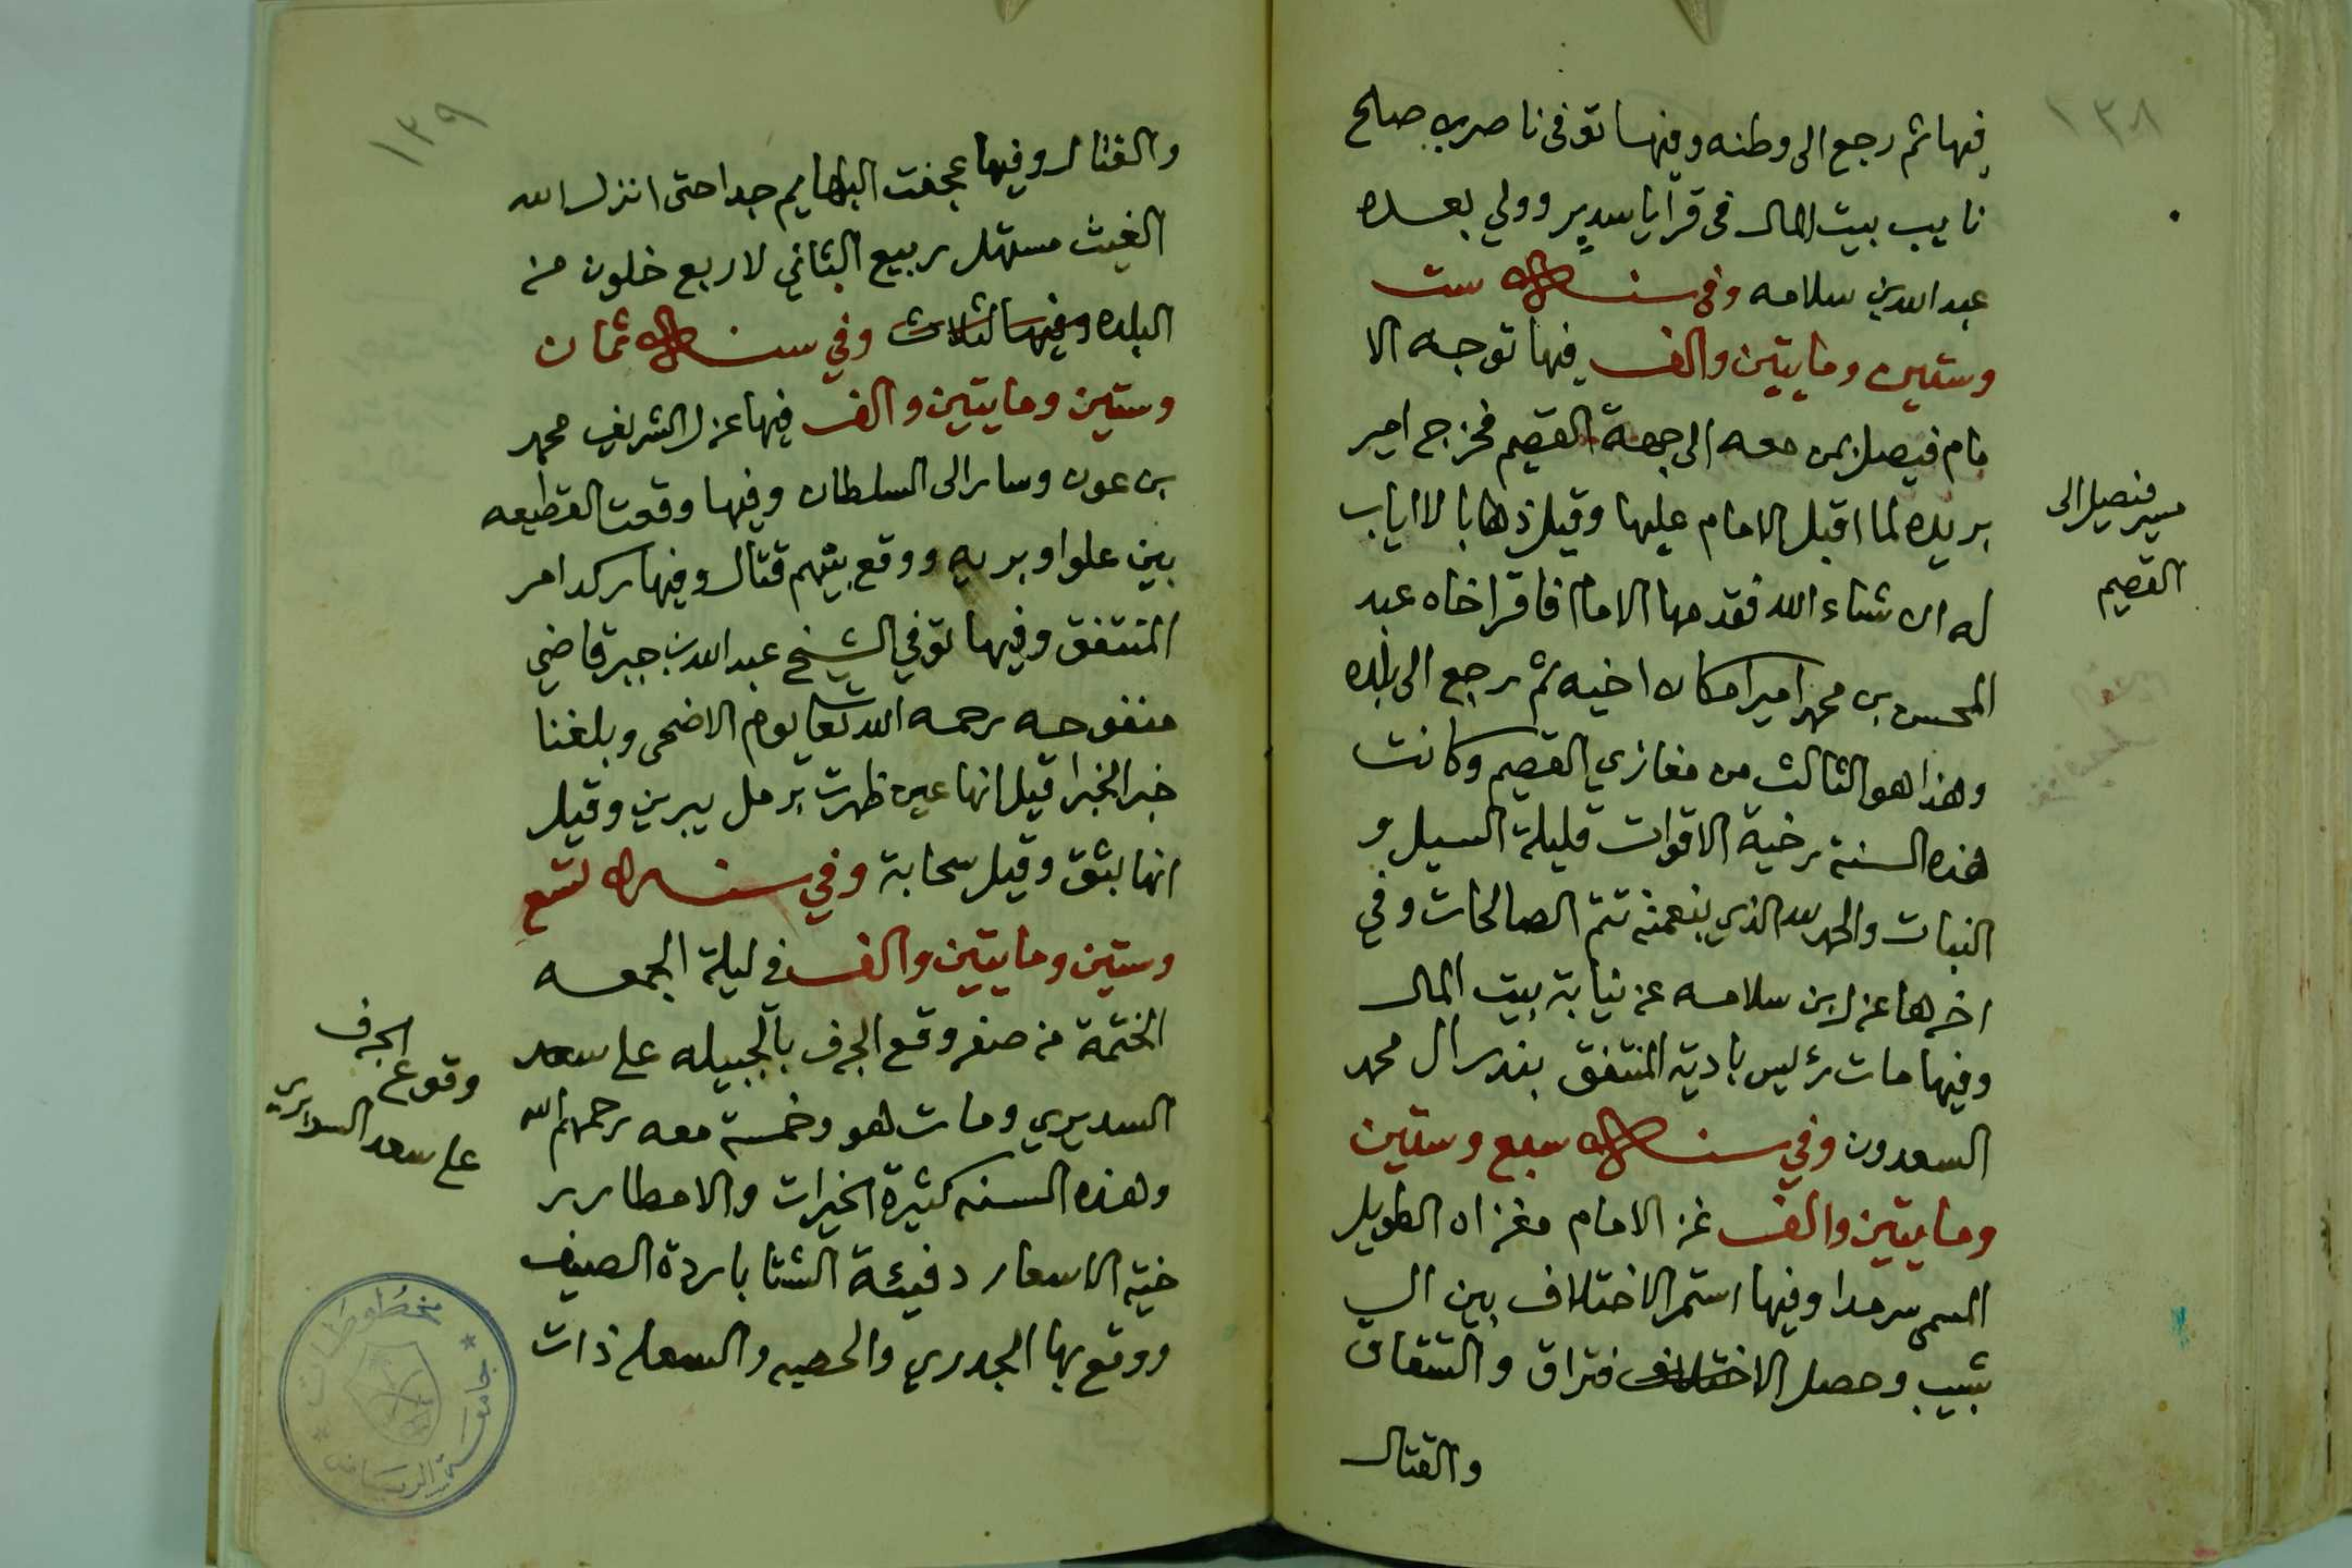 ١٣٨
فيها ثم رجع الى وطنه وفيها توفي ناصر بن صلح
نايب بيت المال في قرايا سدير وولي بعده
عبد الله بن سلامه وفي سنة ست
وستين ومايتين والف فيها توجه الا
مام فيصل بمن معه الى جهة القصيم فخرج امير
بريده لما اقبل الامام عليها وقيل ذهابا لا اياب
له ان شاء الله فقدمها الامام فاقر اخاه عبد
المحسن بن محمد اميرا مكان اخيه ثم رجع الى بلده
وهذا هو الثالث من مغازي القصيم وكانت
هذه السنة رخية الاقوات قليلة السيل و
النبات والحمد لله الذي بنعمته تتم الصالحات وفي
اخرها عزل ابن سلامه عن نيابة بيت المال
وفيها مات رئيس بادية المنتفق بندر ال محمد
السعدون وفي سنة سبع وستين
ومايتين والف غز الامام مغزاه الطويل
المسمى سرمدا وفيها استمر الاختلاف بين ال
شبيب وحصل الا فتراق والشقاق
والقتال
مسير فيصل الى
القصيم
١٣٩
والقتال وفيها عجفت البهايم جدا حتى انزل الله
الغيث مستهل ربيع الثاني لاربع خلون من
البلده وفيها الثلاث وفي سنة ثمان
وستين ومايتين والف فيها عزل الشريف محمد
بن عون وسار الى السلطان وفيها وقعت القطيعه
بين علوا وبريه ووقع بينهم قتال وفيها ركد امر
المنتفق وفيها توفي الشيخ عبد الله بن جبر قاضي
منفوحه رحمه الله تعا يوم الاضحى وبلغنا
خبر الخبرا قيل انها عين ظهرت برمل يبرين وقيل
انها بثق وقيل سحابة وفي سنة تسع
وستين ومايتين والف في ليلة الجمعه
الختمة من صفر وقع الجرف بالجبيله على سعد
السديري ومات هو وخمسة معه رحمهم الله
وهذه السنه كثيرة الخيرات والامطار ر
خية الاسعار دفيئة الشتا باردة الصيف
ووقع بها الجدري والحصبه والسعله ذات
وقوع الجرف
على سعد السديري
مخطوطات
جامعة الرياض